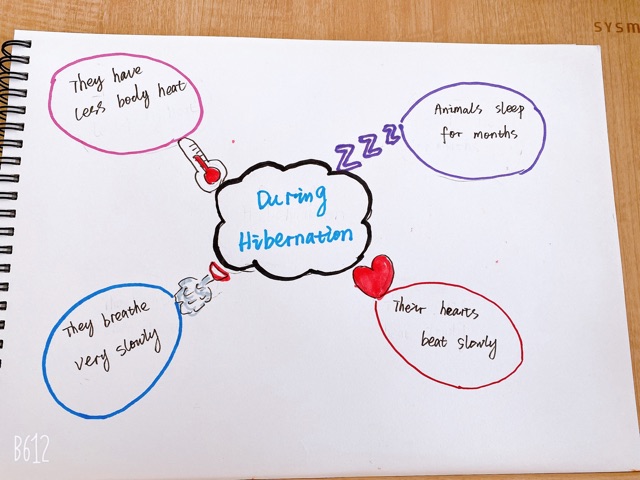 SYSM
They have
less body heat
Animals sleep
for months
zzz
During
Hibernation
They breathe
very slowly
Their hearts
beat slowly
B612